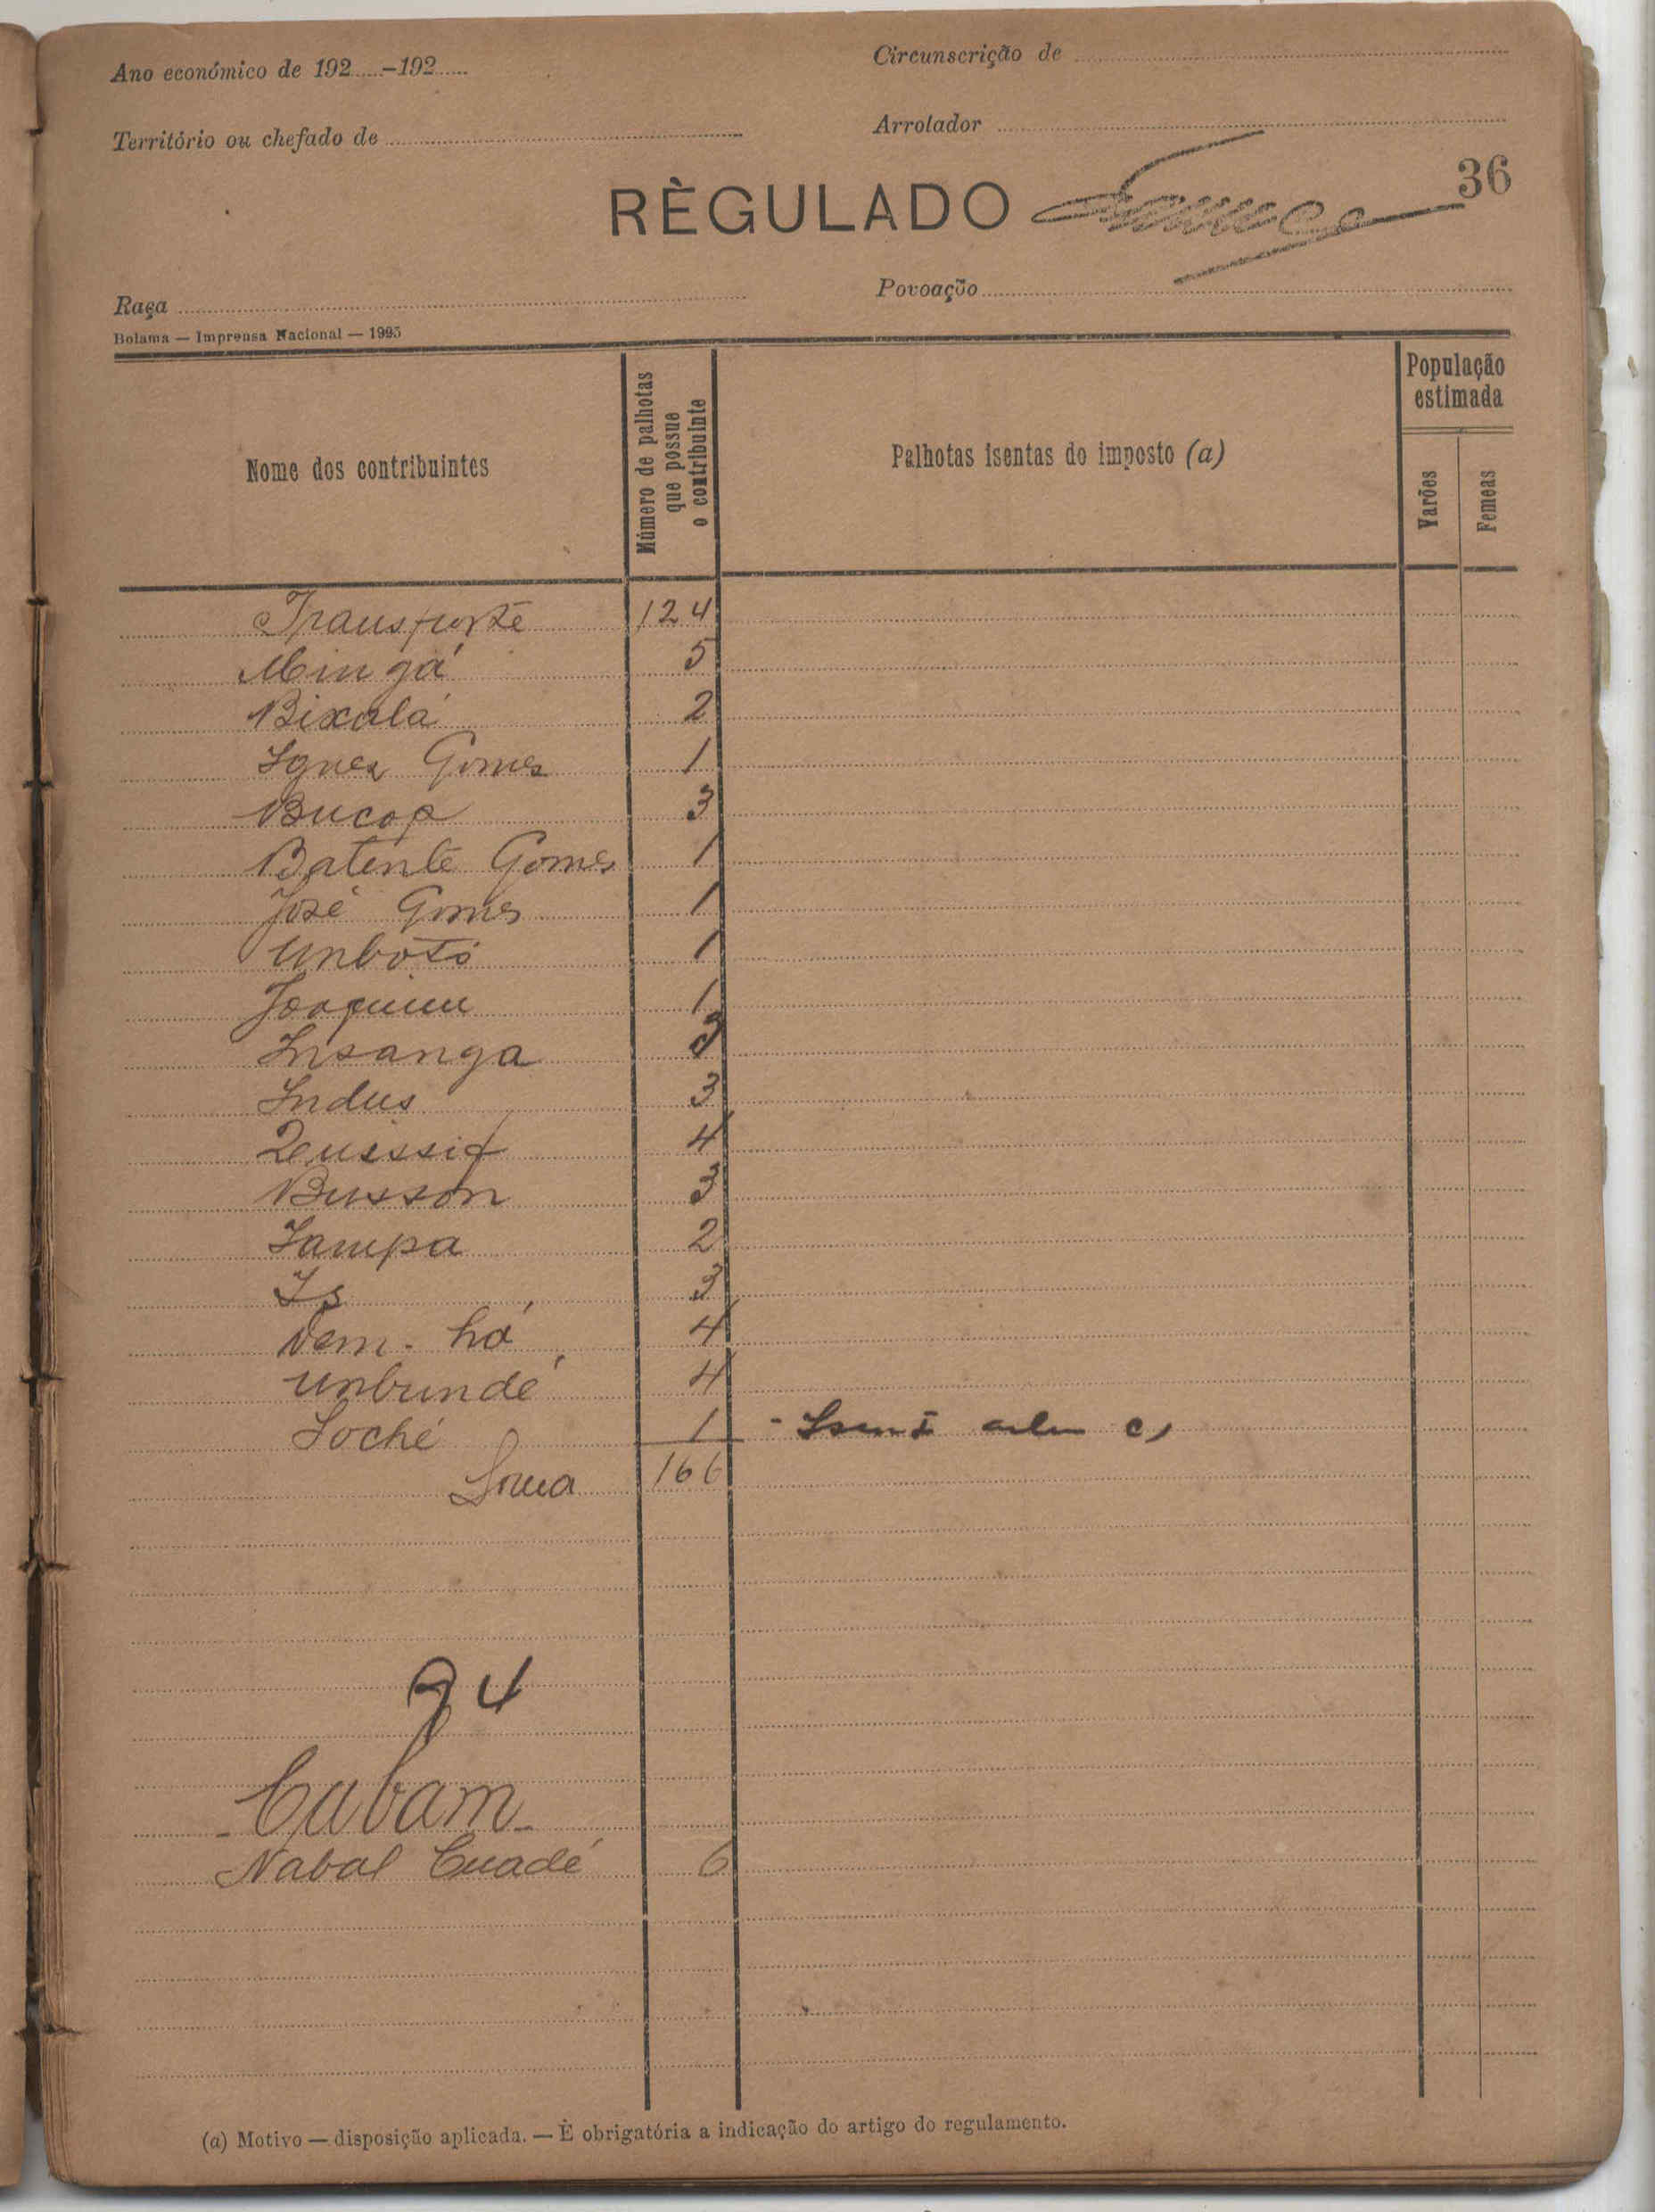 Ano económico de 192.....-192.....
Circunscrição de
Território ou chefado de
Arrolador
36
RÈGULADO
Raça
Povoação
Bolama — Imprensa Nacional — 1925
Nome dos contribuintes
Número de palhotas que possue o contribuinte
Palhotas isentas do imposto (a)
População estimada
Varões
Femeas
Transporte 124
Mingá 5
Bixalá 2
Ignez Gomes 1
Bucop 3
Batente Gomes 1
José Gomes 1
Unbotó 1
Joaquim 1
Insanga 3
Indus 3
Quissif 4
Busson 3
Iampa 2
Is 3
Nem-há 4
Unbundé 4
Soché 1
Soma 166
94
- Cabam -
Nabal Cuadé 6
(a) Motivo — disposição aplicada. — É obrigatória a indicação do artigo do regulamento.